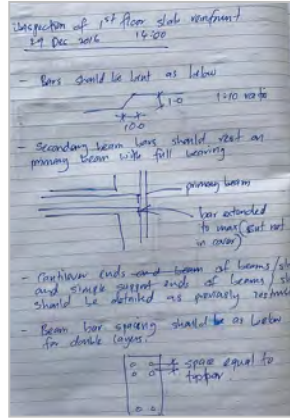 Inspection of 1st floor slab reinfrmnt
29 Dec 2016 14:00
- Bars should be bent as below
1.0
1:10 ratio
100
- Secondary beam bars should rest on
primary beam with full bearing
primary beam
bar extended
to max (but not
in cover)
- Cantilever ends of beams/
and simple support ends of beams/
should be detailed as previously
- Beam bar spacing should be as below
for double layers.
space equal to